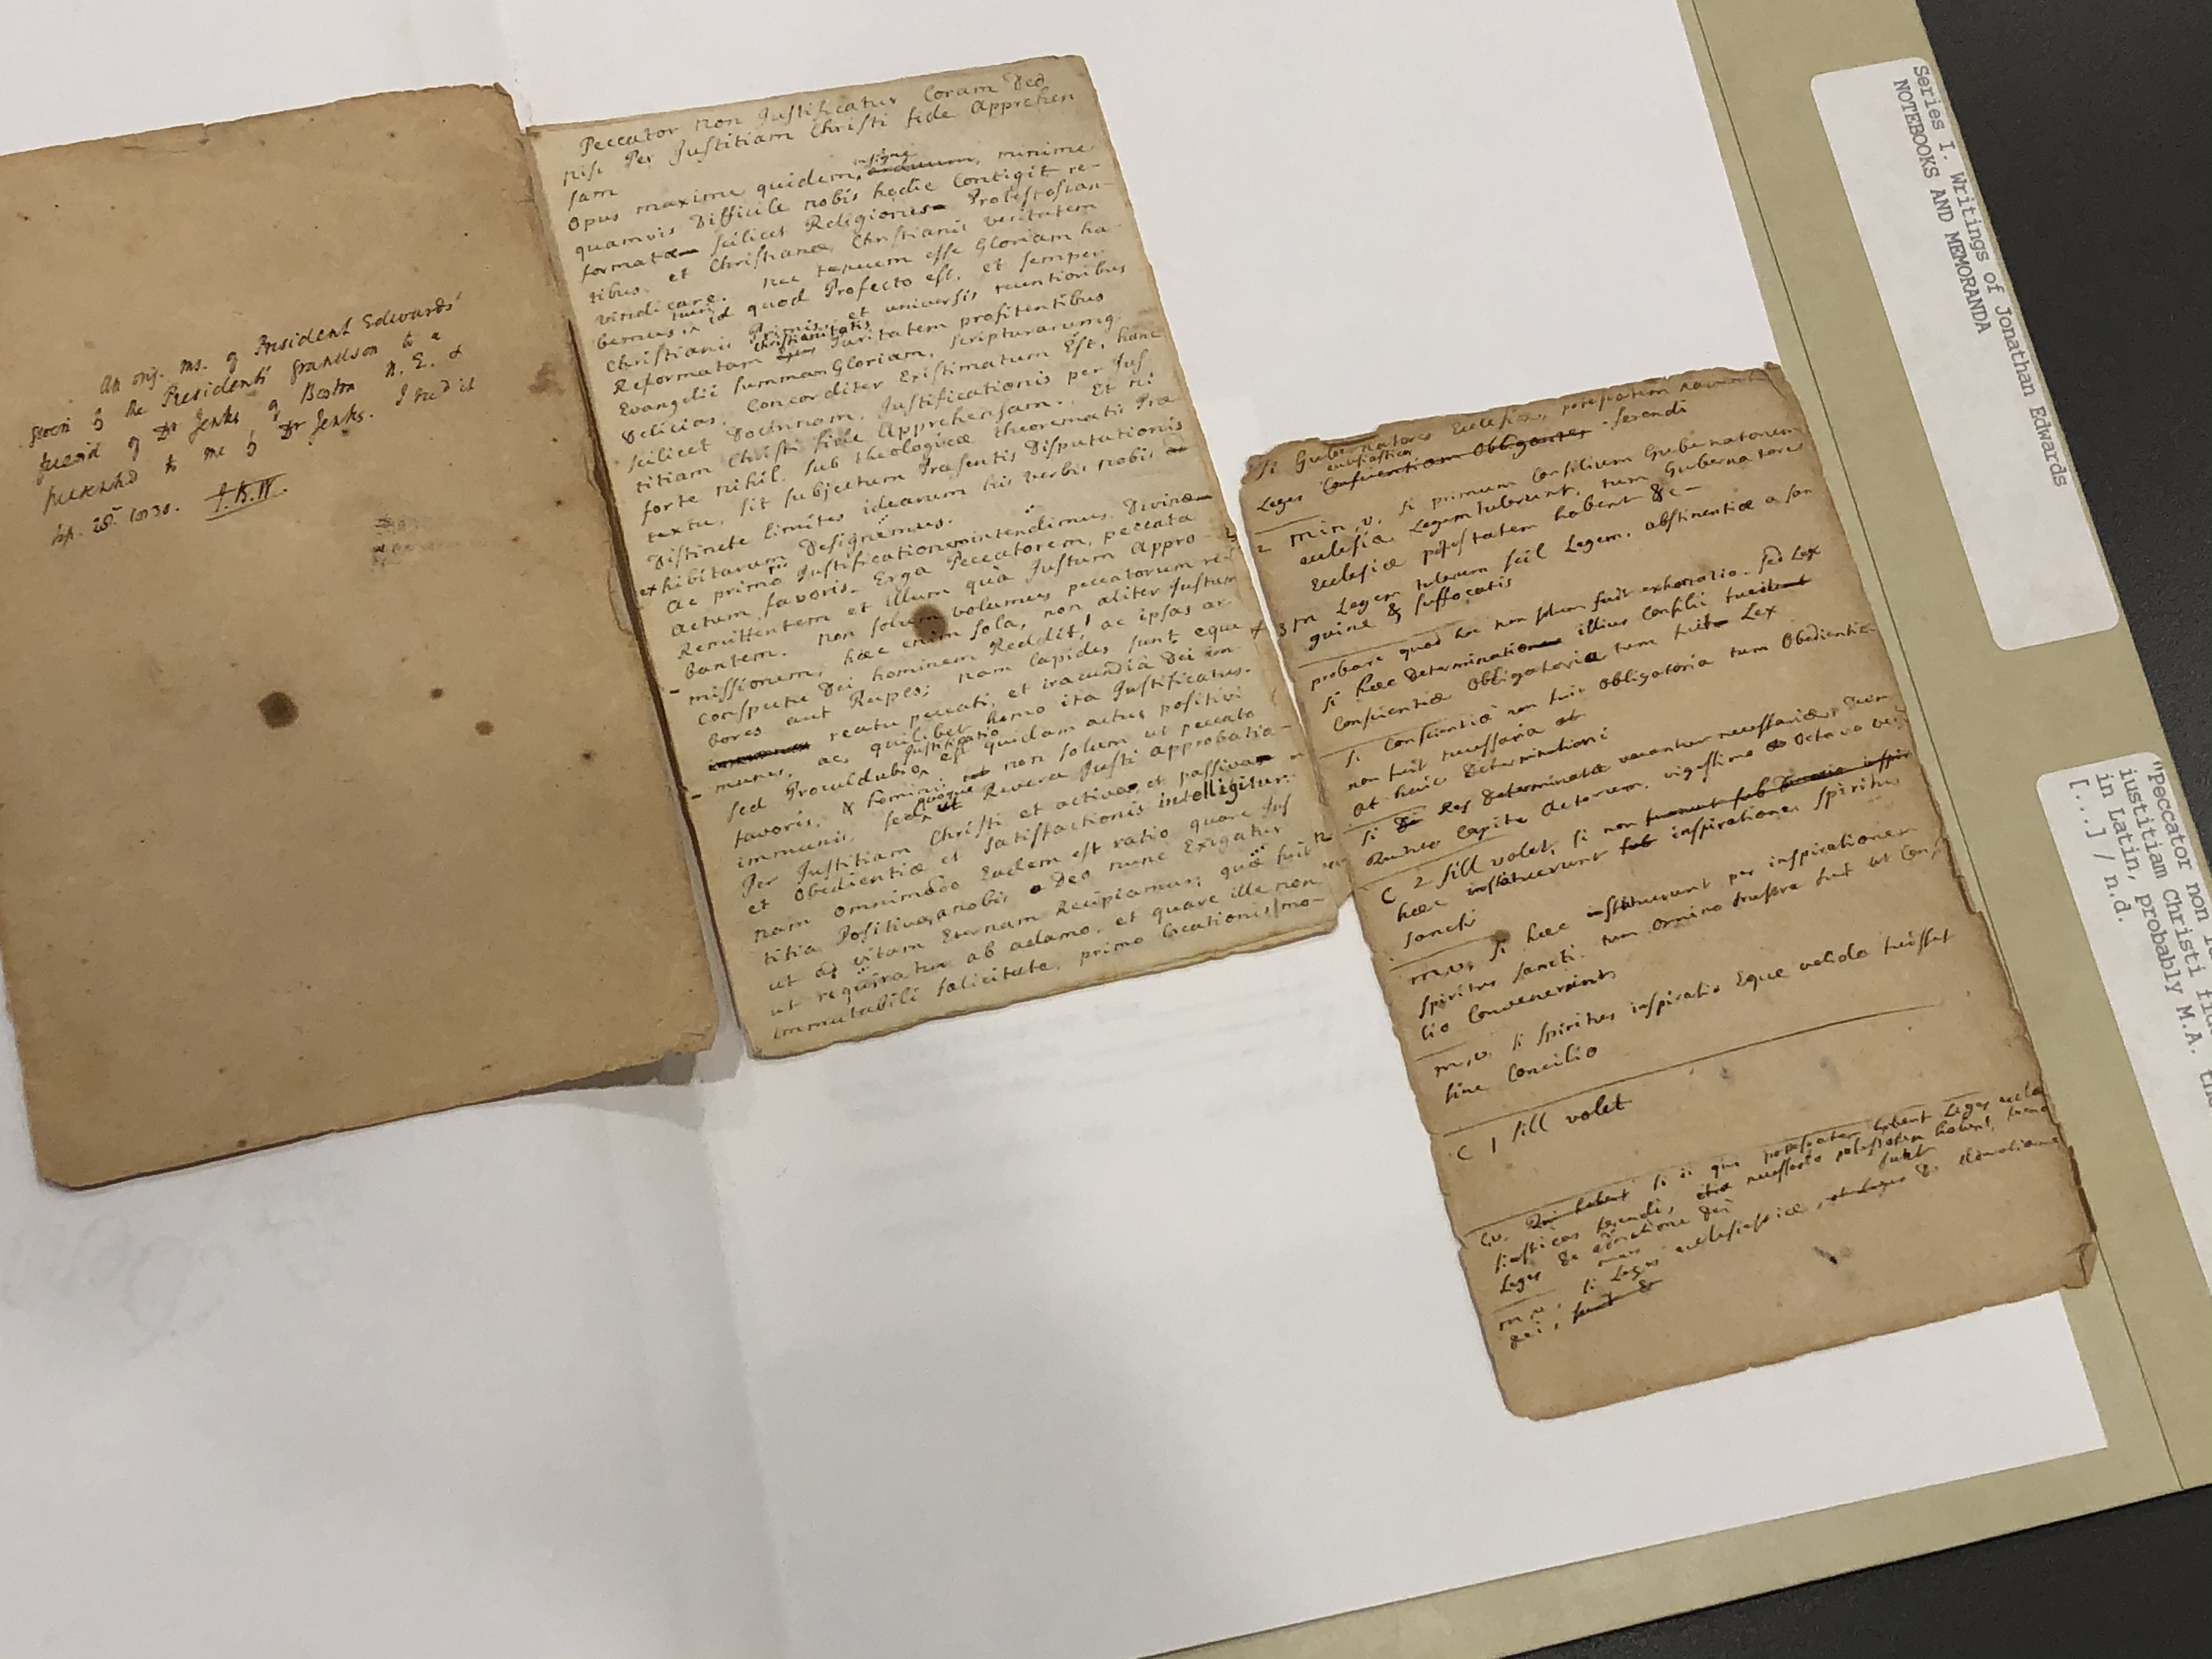 An orig. ms. of President Edwards'
given by the Presidents' grandson to a
friend of Dr Jenks of Boston N. E. &
presented to me by Dr Jenks. I rec'd it
Peccator non Justificatur Coram Deo
nisi Per Justitiam Christi fide Apprehen
sam
Opus maxime quidem, insigne arduum, minime
quamvis Difficile nobis hodie Contigit re-
formatæ scilicet Religionis Protestan-
tibus, et Christianæ, Christianis veritatem
vindicare. nec tenuem esse Gloriam ha-
bemus id quod Profecto est, et semper
Christianis Primis, et universis recentioribus
Reformatam Christianitatis Puritatem profitentibus
Evangelii summam Gloriam, Scripturarumq
Delicias, Concorditer Existimatum Est, hanc
scilicet Doctrinam, Justificationis per Jus
titiam Christi fide Apprehensam. Et ni
forte nihil, sub theologicæ theorematis Præ
textu, sit subjectum Præsentis Disputationis
Distincte limites idearum his verbis nobis
exhibitarum Designemus.
Ac primo Justificationem intendimus, Divinæ
Actum, favoris. Erga Peccatorem, peccata
Remittentem et illum quà Justum Appro-
bantem. non solum volumus peccatorum re-
missionem, hæc enim sola, non aliter Justum
Conspectu Dei hominem Reddit, ac ipsas ar
bores aut Rupes; nam lapides sunt eque
reatu peccati, et iracundiâ Dei im-
munes, ac, quilibet homo ita Justificatus.
sed Proculdubio Justificatio est quidam actus positivi
favoris, & homini non solum ut peccato
immunis, sed quoque ut Revera Justi Approbatio
Per Justitiam Christi et activa, et passiva
et Obedientiæ et satisfactionis intelligitur.
nam omnimodo Eadem est ratio quare Jus
titia Positiva, a nobis a Deo nunc Exigatur
ut ad vitam Eternam Recipiamur; quæ fuit
ut requiratur ab adamo, et quare ille non
immutabili felicitate, primo Creationis mo-
Si Gubernatores Ecclesiæ, potestatem
Leges ecclesiasticas Conscientiam Obligantes ferendi
2 min. v. si primum Consilium Gubernatorum
ecclesiæ Legem tulerunt, tum Gubernatores
Ecclesiæ potestatem habent &c-
3 m Legem tulerunt scil Legem, abstinentiæ a san
guine & suffocatis
probare quod hoc non solum fuit exhortatio. sed Lex
si hæc Determinatio illius Consilii
Conscientiæ Obligatoria tum Lex
si Conscientiæ non fuit Obligatoria tum Obedientia
non fuit necessaria
at huic Determinationi
si Res Determinatæ vocantur necessariæ,
Quinto Capite Actorum, vigessimo Octavo
C 2 sill volet, si non
hæc instituerunt inspiratione, spiritus
sancti
m.v. si hæc instituerunt per inspirationem
spiritus sancti. tum Omnino frustra fuit ut Con
lio Convenerint
m.v. si spiritus inspiratio Eque valida fuisset
sine Concilio
C 1 sill volet
C.v. Qui habent si ii qui potestatem habent Leges eccle
siasticas ferendi, necessario potestatem habent,
Leges de adoratione Dei
m.v. si Leges ecclesiasticæ,
Dei,
Series I. Writings of Jonathan Edwards
NOTEBOOKS AND MEMORANDA
"Peccator non
iustitiam Christi
in Latin, probably M.A.
[...] / n.d.